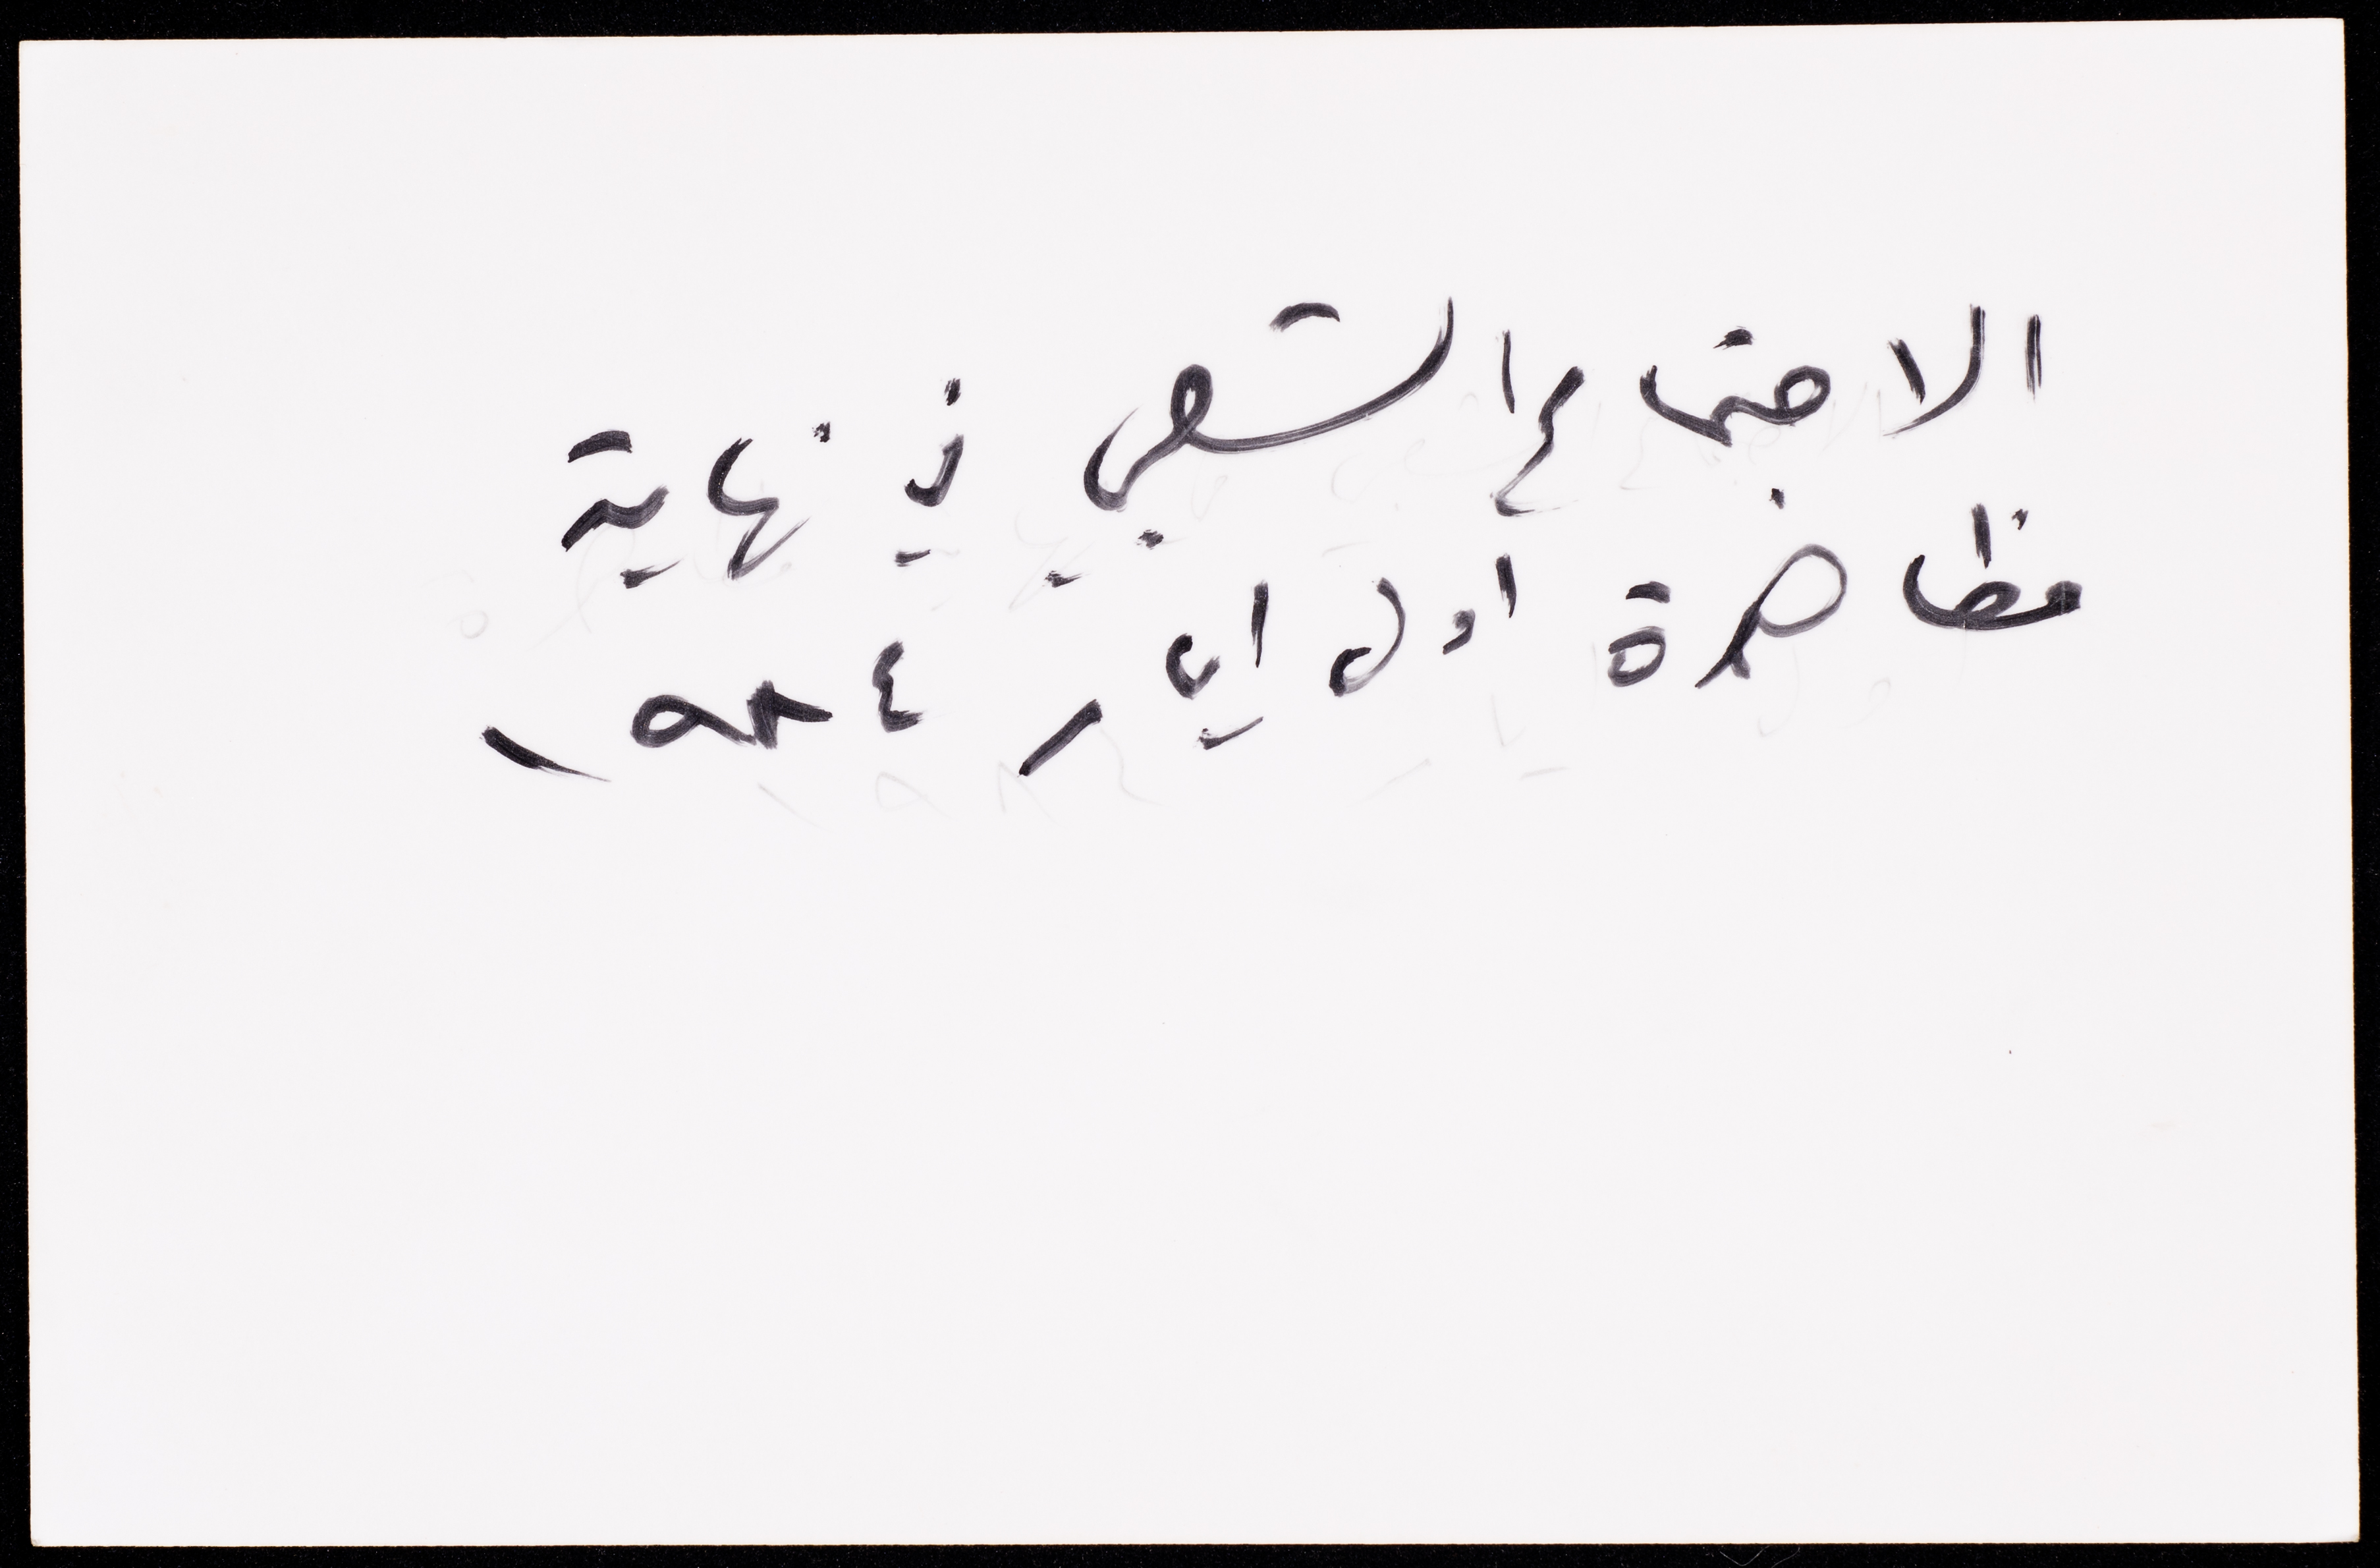 الاجتماع الشعبي في نهاية
مظاهرة اول ايار ١٩٨٤